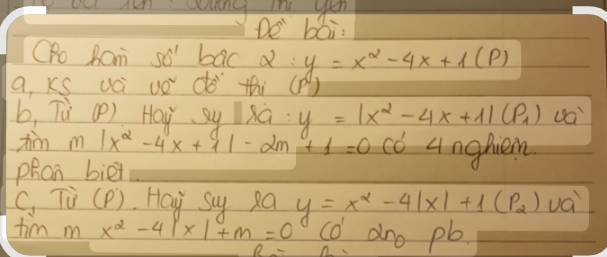 Đề bài:
Cho hàm số bậc 2: y = x² - 4x + 1 (P)
a, KS và vẽ đồ thị (P)
b, Từ (P). Hãy suy ra: y = |x² - 4x + 1| (P₁) và
tìm m |x² - 4x + 1| - 2m + 1 = 0 có 4 nghiệm
phân biệt.
c, Từ (P). Hãy suy ra y = x² - 4|x| + 1 (P₂) và
tìm m x² - 4|x| + m = 0 có 2no pb.